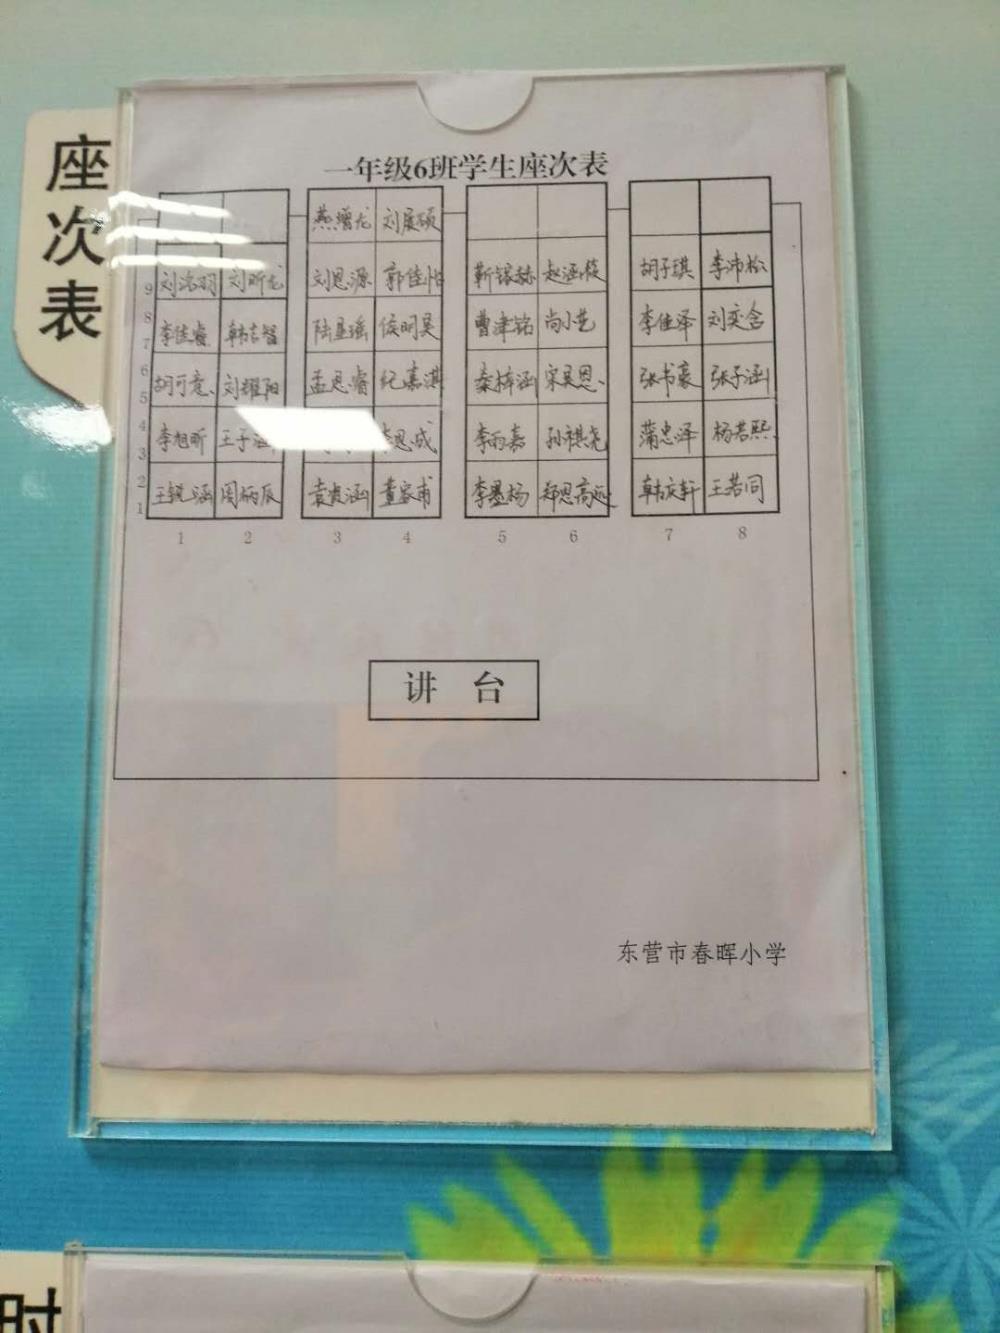 座次表
一年级6班学生座次表
燕增龙 刘展硕
9 刘洺羽 刘昕龙 刘恩源 郭佳怡 靳镓赫 赵涵筱 胡子琪 李沛松
8 李佳睿 韩吉智 陆星瑶 侯明昊 曹津铭 尚小艺 李佳泽 刘奕含
7
6 胡可意 刘耀阳 孟思睿 纪嘉淇 秦梓涵 宋昊恩 张书豪 张子涵
5
4 李旭昕 王子涵 李恩成 李雨嘉 孙祺尧 蒲忠泽 杨若熙
3
2 王锐涵 周炳辰 袁贵涵 董家甫 李墨杨 郑恩高远 韩庆轩 王若同
1
1 2 3 4 5 6 7 8
讲 台
东营市春晖小学
时